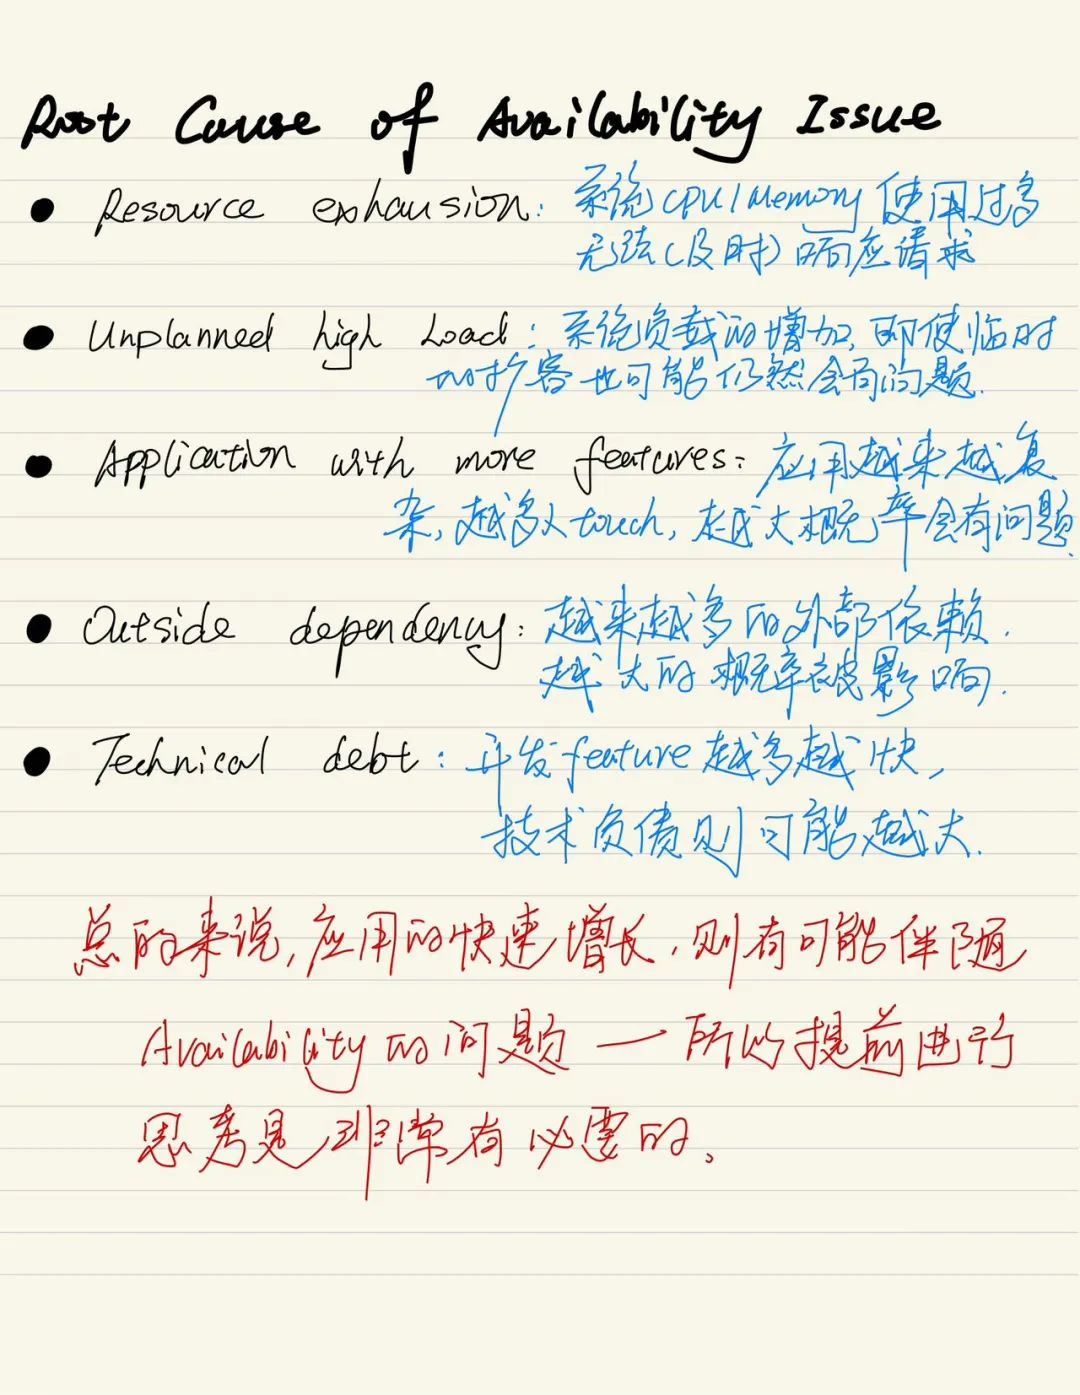 Root Cause of Availability Issue
● Resource exhausion: 系统CPU/Memory 使用过多
无法(及时)响应请求
● Unplanned high Load: 系统负载的增加, 即使临时
的扩容也可能仍然会有问题.
● Application with more features: 应用越来越复
杂, 越多人touch, 越大概率会有问题.
● Outside dependency: 越来越多的外部依赖.
越大的概率被影响.
● Technical debt: 开发feature越多越快,
技术负债则可能越大.
总的来说, 应用的快速增长, 则有可能伴随
Availability的问题 — 所以提前进行
思考是非常有必要的。